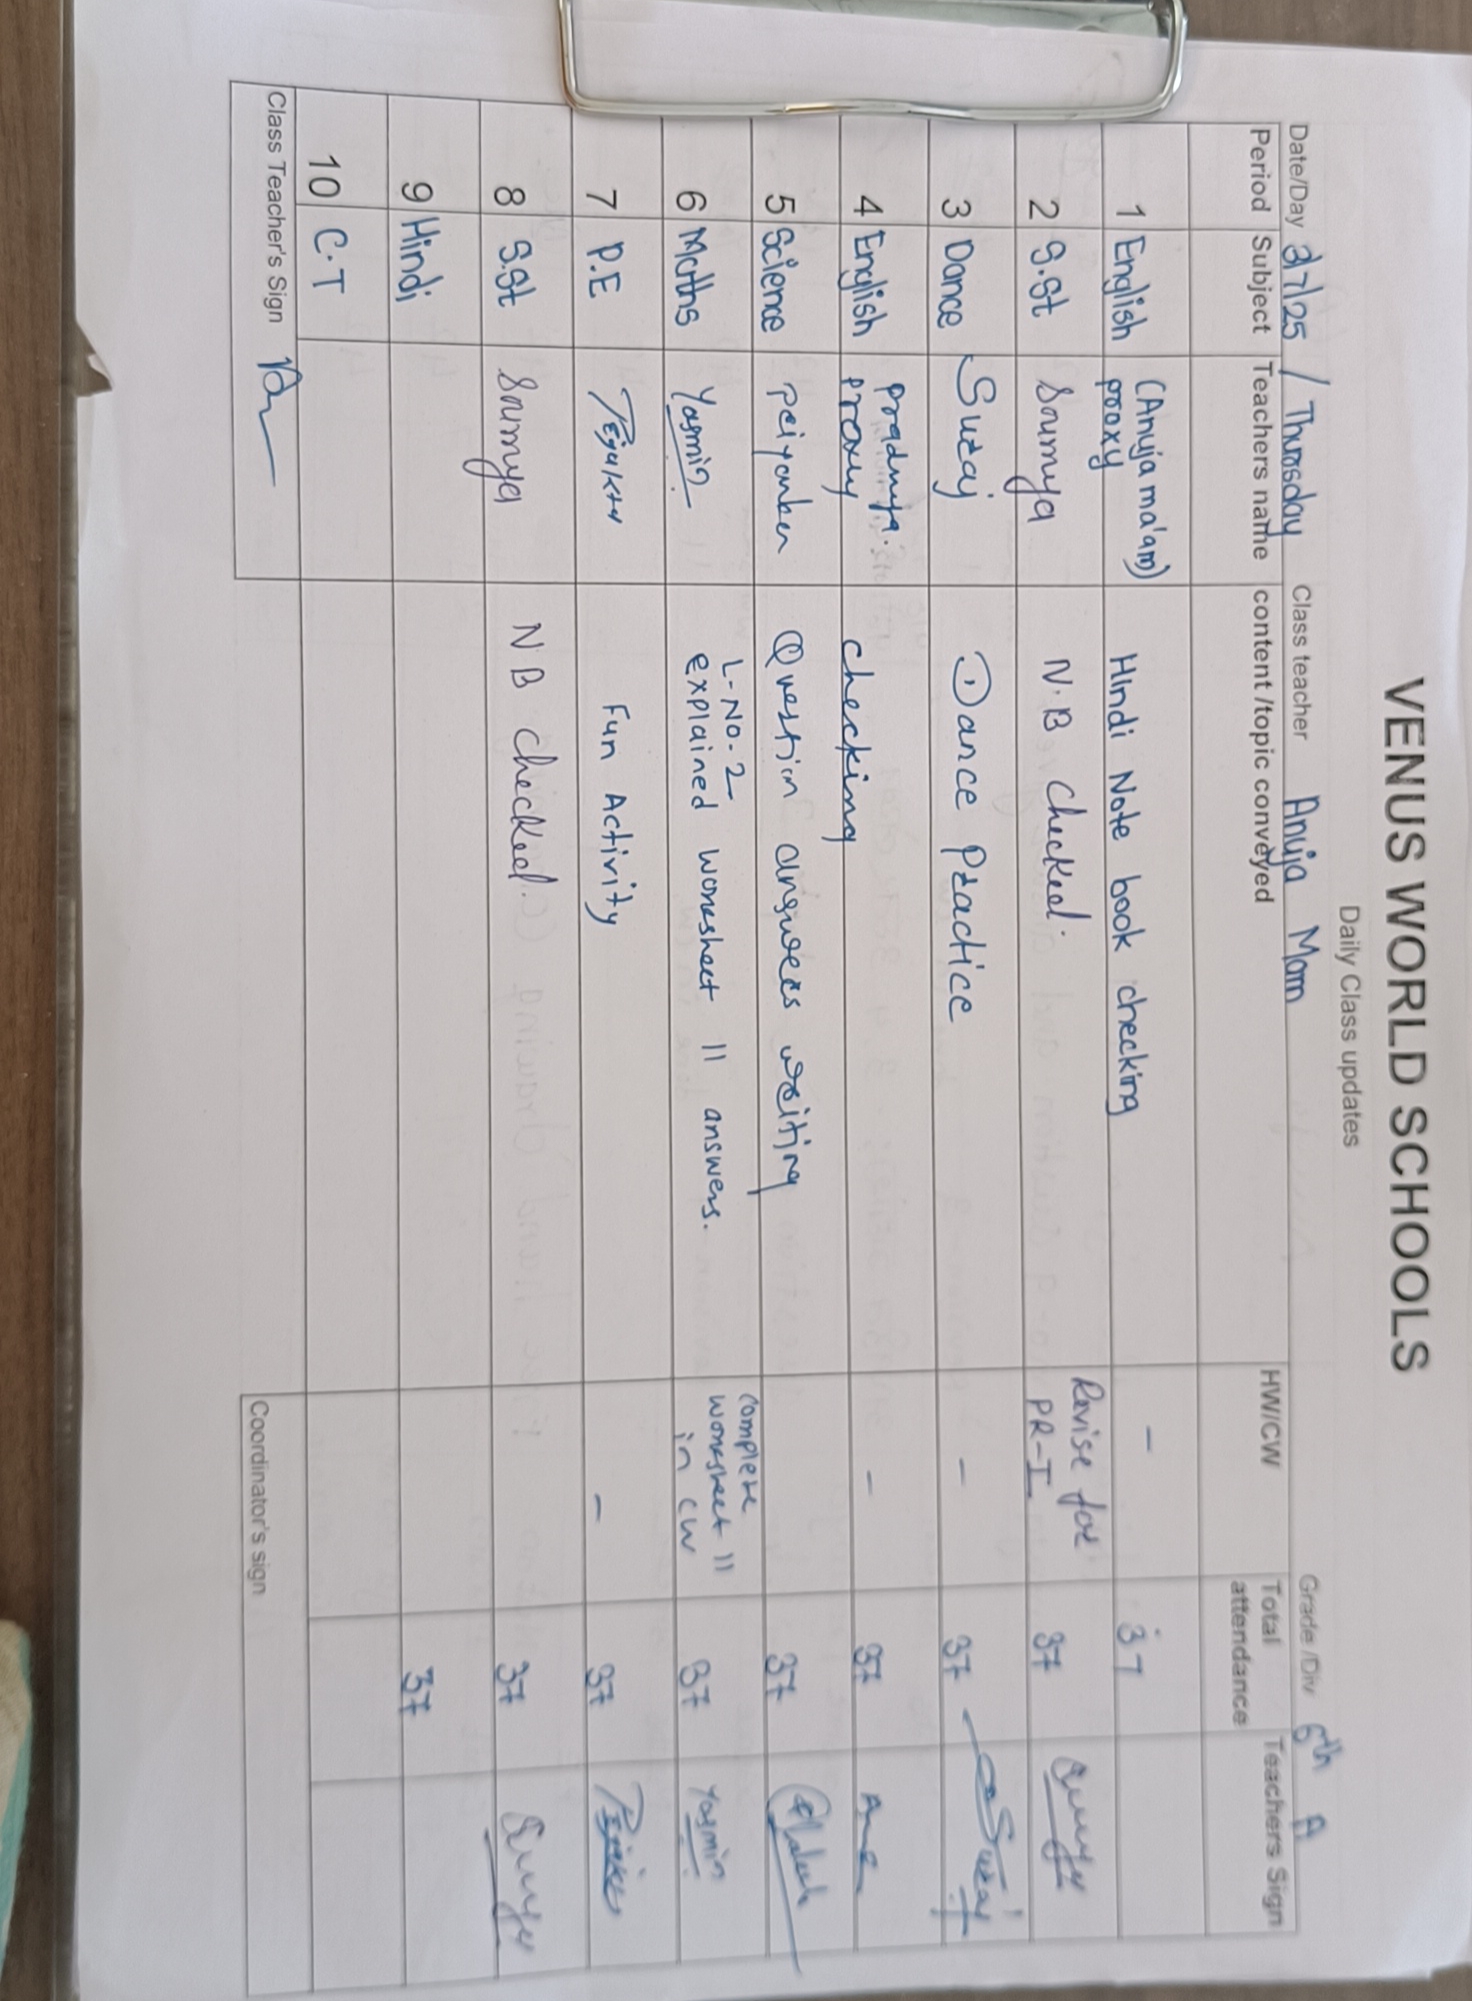 VENUS WORLD SCHOOLS
Daily Class updates
Date/Day 3/7/25 / Thursday Class teacher Anuja Mam Grade /Div 6th A
Period Subject Teachers name content /topic conveyed HW/CW Total attendance Teachers Sign
1 English (Anuja ma'am) proxy Hindi Note book checking - 37
2 S.St Soumya N.B checked. Revise for PR-I 37
3 Dance Suraj Dance Practice - 37 Suraj
4 English pradnya. proxy checking - 37
5 Science Question answers writing 37
6 Maths Yasmin L-No-2 explained worksheet 11 answers. complete worksheet 11 in cw 37 Yasmin
7 P.E Fun Activity - 37
8 S.St Soumya N B checked. 37
9 Hindi 37
10 C.T
Class Teacher's Sign Coordinator's sign